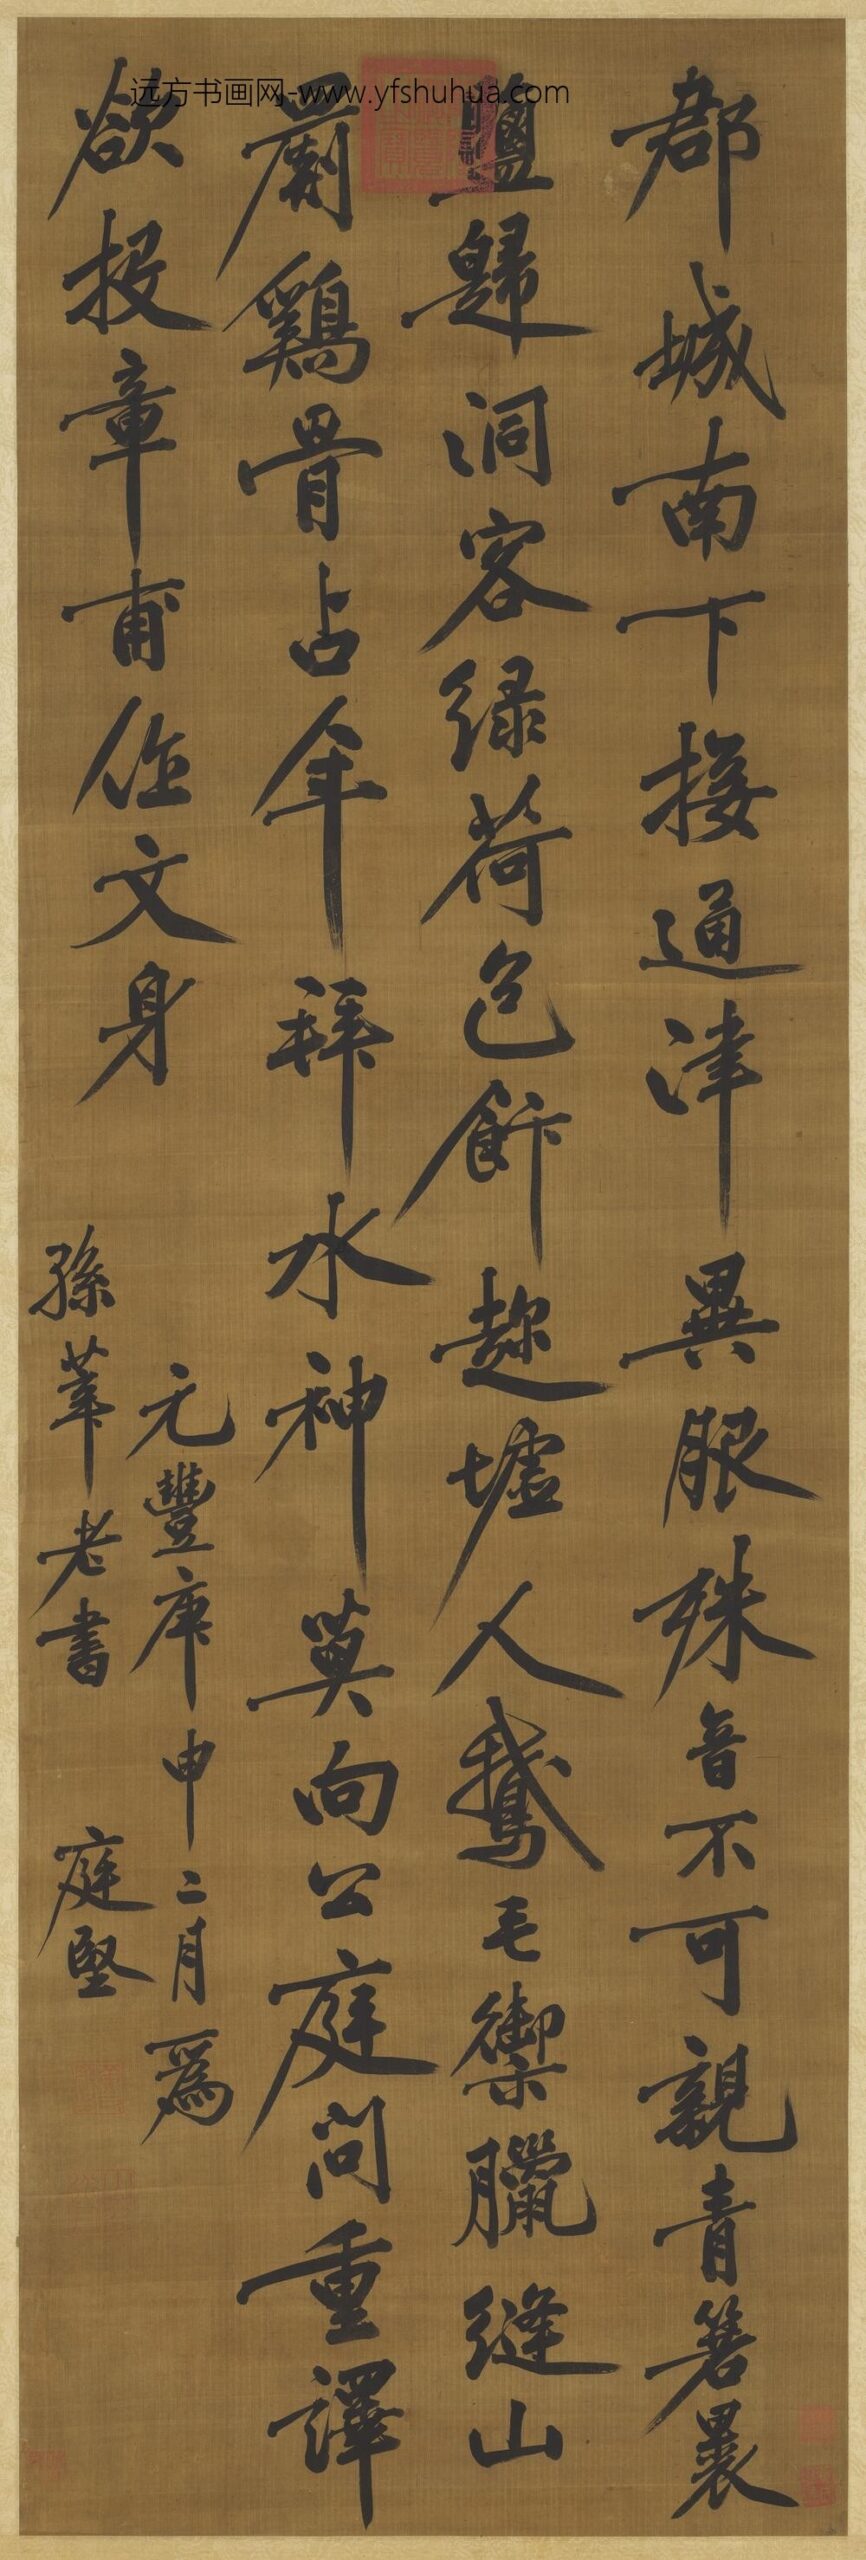 远方书画网-www.yfshuhua.com
郡城南下接通津異服殊音不可親青箬裹
鹽歸洞客綠荷包飰趂墟人鵝毛禦臘縫山
罽鷄骨占年拜水神莫向公庭問重譯
欲投章甫作文身
元豐庚申二月為
孫莘老書 庭堅